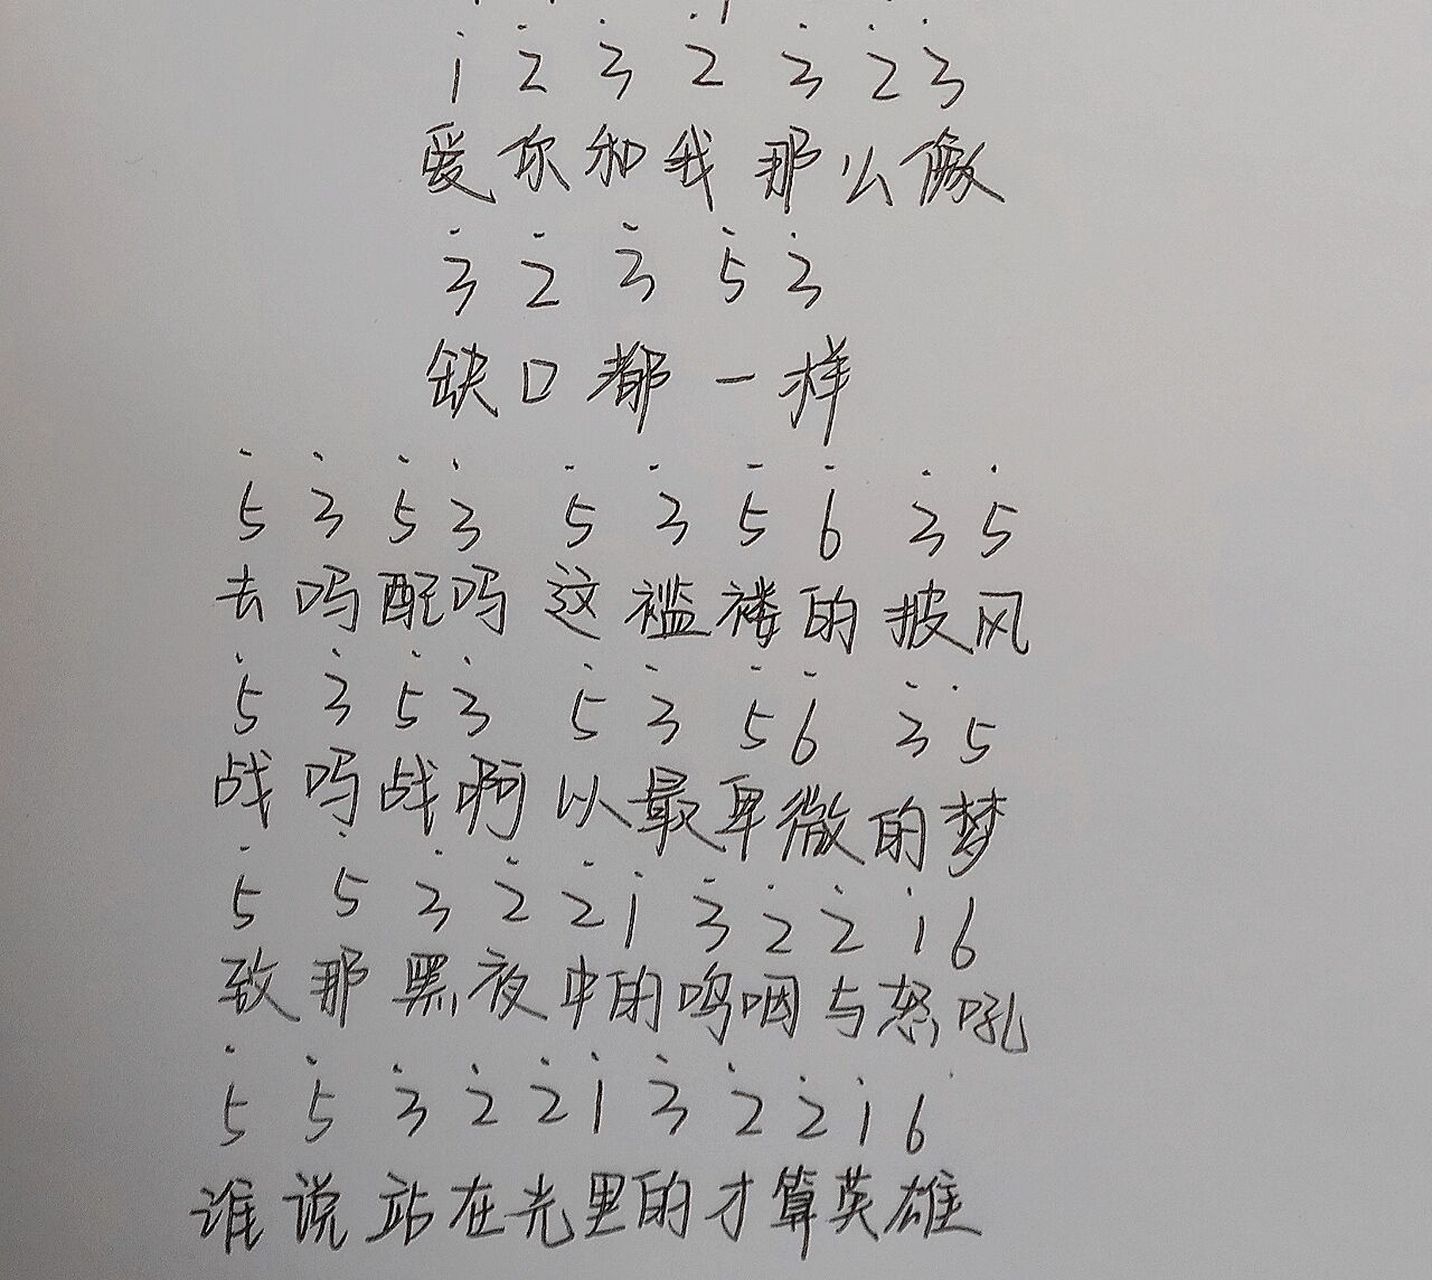 i 2̇ 3̇ 2̇ 3̇ 2̇ 3̇
爱你和我 那么像
3̇ 2̇ 3̇ 5̇ 3̇
缺口都一样
5̇ 3̇ 5̇ 3̇ 5̇ 3̇ 5̇ 6̇ 3̇ 5̇
去吗配吗 这褴褛的披风
5̇ 3̇ 5̇ 3̇ 5̇ 3̇ 5̇ 6̇ 3̇ 5̇
战吗战啊 以最卑微的梦
5̇ 5̇ 3̇ 2̇ 2̇ i 3̇ 2̇ 2̇ i 6
致那黑夜中的呜咽与怒吼
5̇ 5̇ 3̇ 2̇ 2̇ i 3̇ 2̇ 2̇ i 6
谁说站在光里的才算英雄